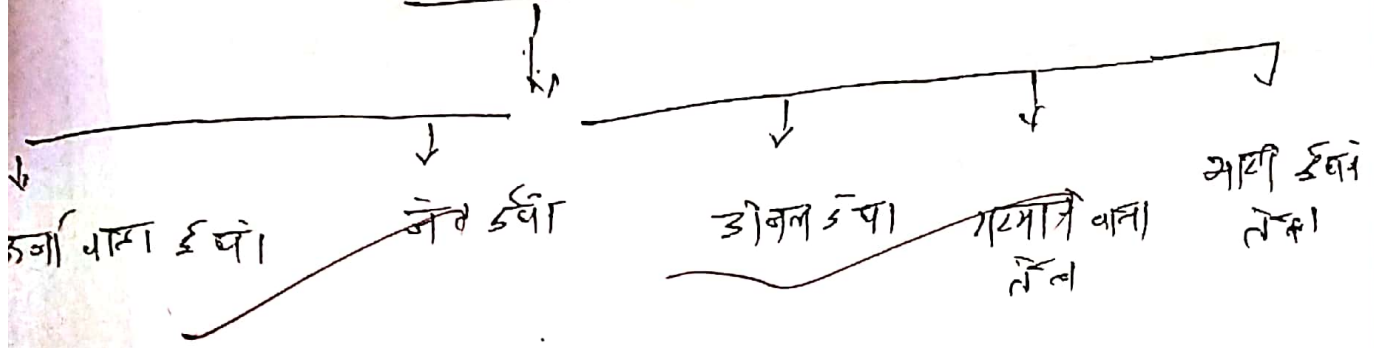 ऊर्जा वाला ईधं।
जेट ईधं।
डीजल ईधं।
गरमाने वाला
तेल
भारी ईधनं
तेल